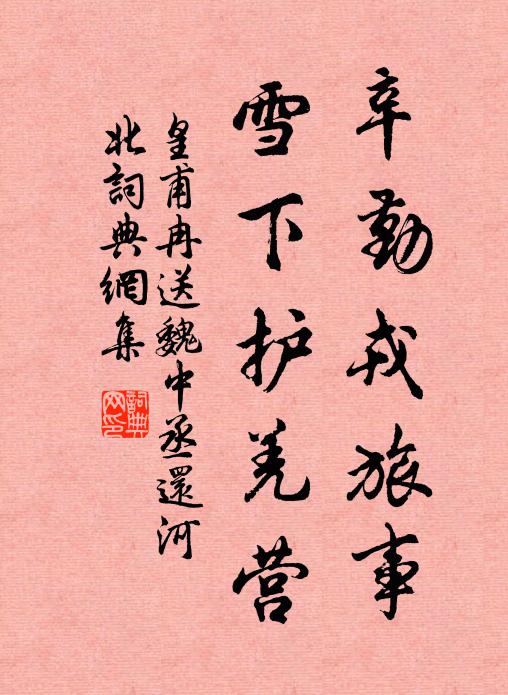 辛勤戎旅事
雪下护羌营
皇甫冉送魏中丞還河
北詞典網集
詞典网印